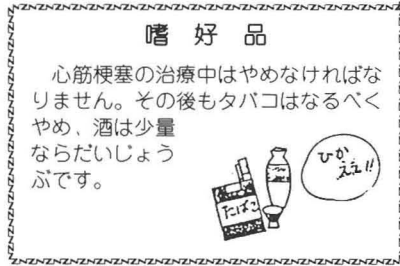 嗜好品
心筋梗塞の治療中はやめなければな
りません。その後もタバコはなるべく
やめ、酒は少量
ならだいじょう
ぶです。
たばこ
ひか
ええ!!